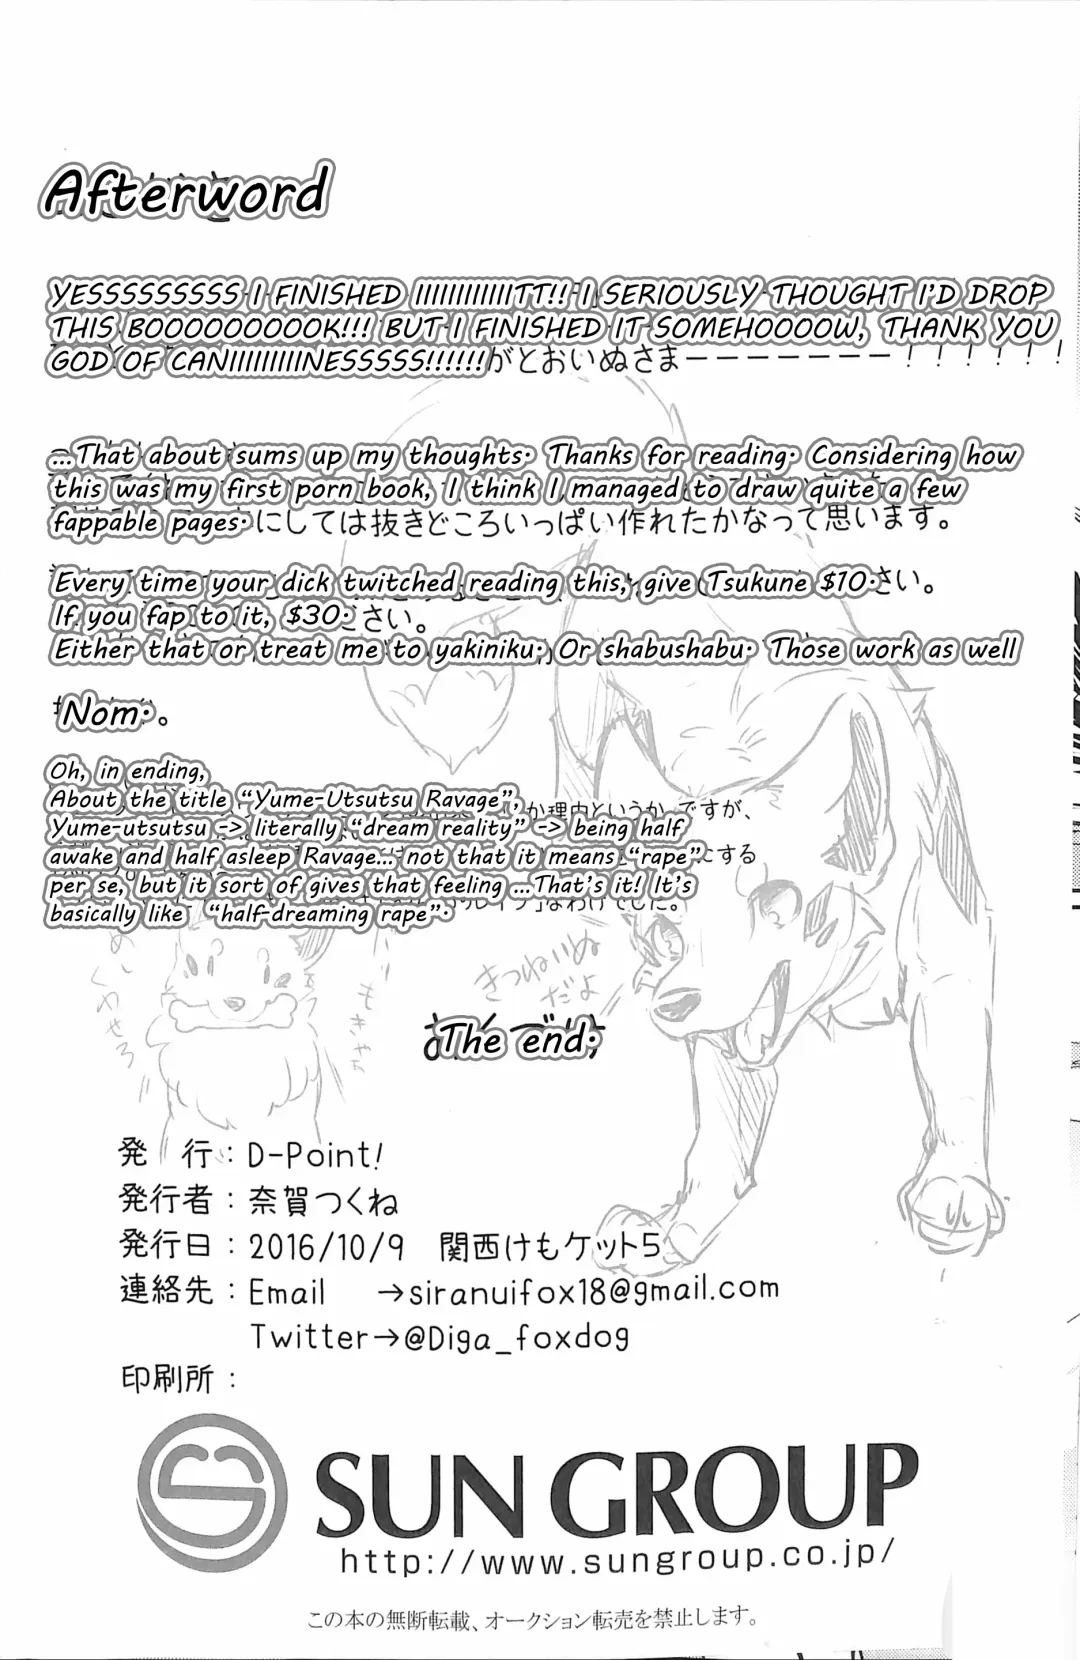 Afterword
YESSSSSSSSS I FINISHED IIIIIIIIIIIITT!! I SERIOUSLY THOUGHT I'D DROP
THIS BOOOOOOOOOK!!! BUT I FINISHED IT SOMEHOOOOW, THANK YOU
GOD OF CANIIIIIIIIINESSSSS!!!!!!がとおいぬさまーーーーーーー！！！！！！
...That about sums up my thoughts. Thanks for reading. Considering how
this was my first porn book, I think I managed to draw quite a few
fappable pages.にしては抜きどころいっぱい作れたかなって思います。
Every time your dick twitched reading this, give Tsukune $10.さい。
If you fap to it, $30.ださい。
Either that or treat me to yakiniku. Or shabushabu. Those work as well
Nom.。
Oh, in ending,
About the title "Yume-Utsutsu Ravage". か理由というか、ですが、
Yume-utsutsu -> literally "dream reality" -> being half
awake and half asleep Ravage... not that it means "rape" にする
per se, but it sort of gives that feeling ...That's it! It's
basically like "half-dreaming rape". レイプ」なわけでした。
めしくわせろ
もきゃもきゃ
きつねいぬ
だよ
The end.
発　行：D-Point!
発行者：奈賀つくね
発行日：2016/10/9　関西けもケット5
連絡先：Email　→siranuifox18@gmail.com
Twitter→@Diga_foxdog
印刷所：
SUN GROUP
http://www.sungroup.co.jp/
この本の無断転載、オークション転売を禁止します。